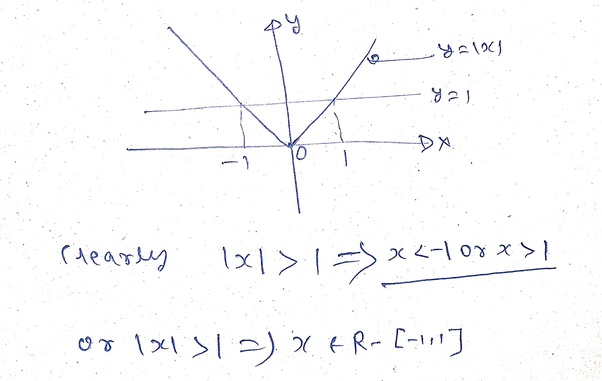 y
y=|x|
y=1
-1 0 1 x
Clearly |x|>1 => x<-1 or x>1
or |x|>1 => x ∈ R-[-1,1]